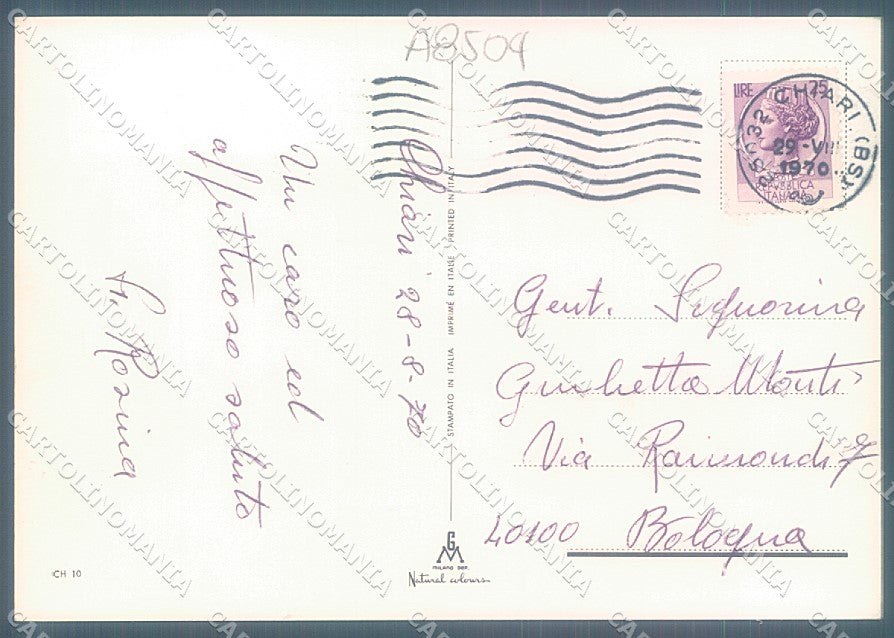 A8509
LIRE 25
25032 CHIARI (BS)
29-VIII
1970
REPUBBLICA
ITALIANA
Chiari 28-8-70
Un caro ed
affettuoso saluto
Rosina
STAMPATO IN ITALIA IMPRIMÉ EN ITALIE PRINTED IN ITALY
Gent. Signorina
Giulietta Monti
Via Raimondi 7
40100 Bologna
GM
MILANO DEP.
Natural colours
CH 10
CARTOLINOMANIA